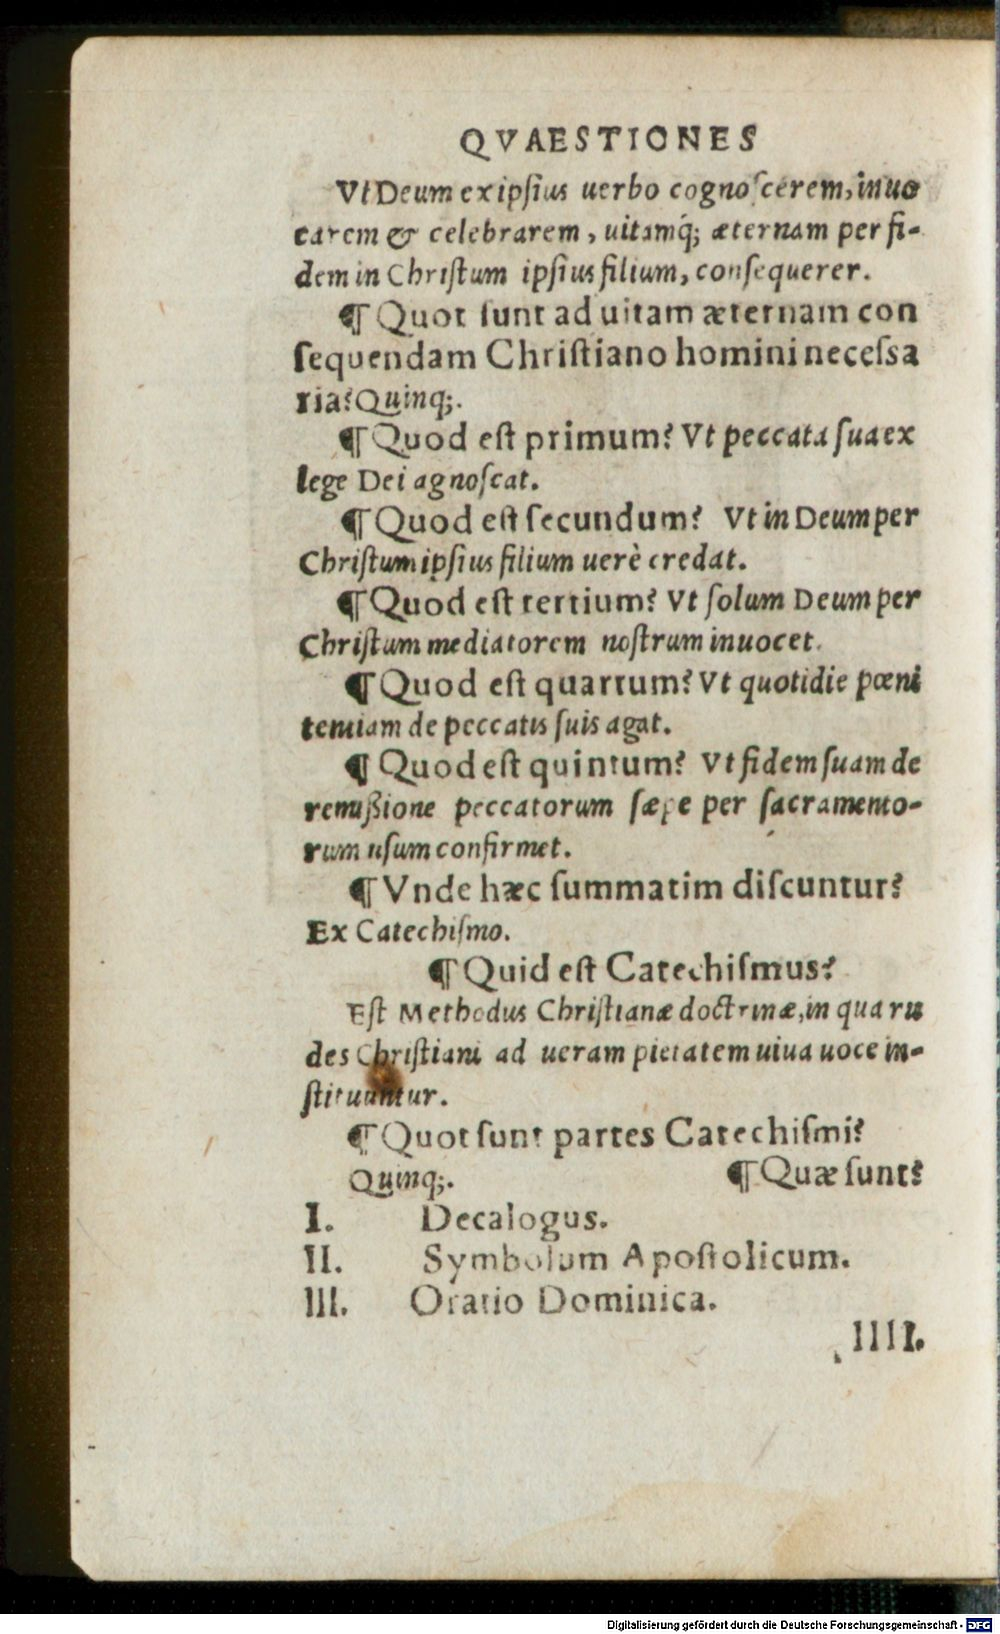 QVAESTIONES
Vt Deum ex ipſius uerbo cognoſcerem, inuo
carem & celebrarem, uitamq́; æternam per fi-
dem in Chriſtum ipſius filium, conſequerer.
¶ Quot ſunt ad uitam æternam con
ſequendam Chriſtiano homini neceſſa
ria? Quinq;.
¶ Quod eſt primum? Vt peccata ſua ex
lege Dei agnoſcat.
¶ Quod eſt ſecundum? Vt in Deum per
Chriſtum ipſius filium uerè credat.
¶ Quod eſt tertium? Vt ſolum Deum per
Chriſtum mediatorem noſtrum inuocet.
¶ Quod eſt quartum? Vt quotidie pœni
tentiam de peccatis ſuis agat.
¶ Quod eſt quintum? Vt fidem ſuam de
remißione peccatorum ſæpe per ſacramento-
rum uſum confirmet.
¶ Vnde hæc ſummatim diſcuntur?
Ex Catechiſmo.
¶ Quid eſt Catechiſmus?
Eſt Methodus Chriſtianæ doctrinæ, in qua ru
des Chriſtiani ad ueram pietatem uiua uoce in-
ſtituuntur.
¶ Quot ſunt partes Catechiſmi?
Quinq;. ¶ Quæ ſunt?
I. Decalogus.
II. Symbolum Apoſtolicum.
III. Oratio Dominica.
IIII.
Digitalisierung gefördert durch die Deutsche Forschungsgemeinschaft - DFG